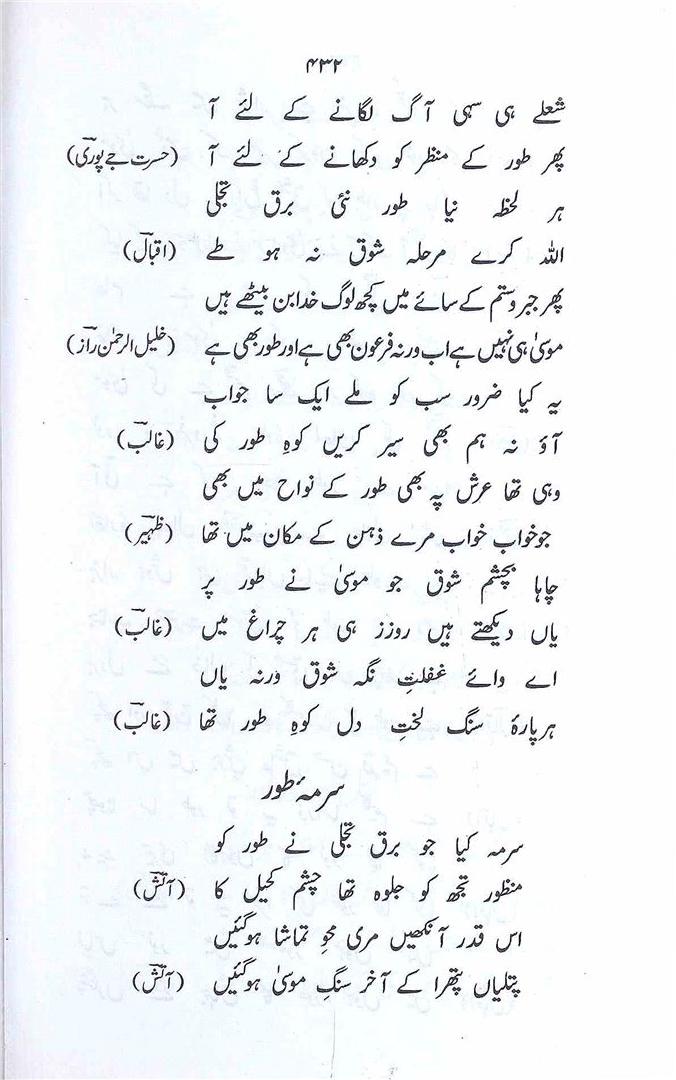 ۴۳۲
شعلے ہی سہی آگ لگانے کے لئے آ
پھر طور کے منظر کو دکھانے کے لئے آ (حسرت جے پوری)
ہر لحظہ نیا طور نئی برق تجلی
اللہ کرے مرحلہ شوق نہ ہو طے (اقبال)
پھر جبر و ستم کے سائے میں کچھ لوگ خدا بن بیٹھے ہیں
موسیٰ ہی نہیں ہے اب ورنہ فرعون بھی ہے اور طور بھی ہے (خلیل الرحمٰن راز)
یہ کیا ضرور سب کو ملے ایک سا جواب
آؤ نہ ہم بھی سیر کریں کوہِ طور کی (غالب)
وہی تھا عرش پہ بھی طور کے نواح میں بھی
جو خواب خواب مرے ذہن کے مکان میں تھا (ظہیر)
چاہا بچشم شوق جو موسیٰ نے طور پر
یاں دیکھتے ہیں روزز ہی ہر چراغ میں (غالب)
اے وائے غفلتِ نگہ شوق ورنہ یاں
ہر پارۂ سنگ لختِ دل کوہِ طور تھا (غالب)
سرمۂ طور
سرمہ کیا جو برق تجلی نے طور کو
منظور تجھ کو جلوہ تھا چشم کحیل کا (آتش)
اس قدر آنکھیں مری محوِ تماشا ہوگئیں
پتلیاں پتھرا کے آخر سنگِ موسیٰ ہوگئیں (آتش)